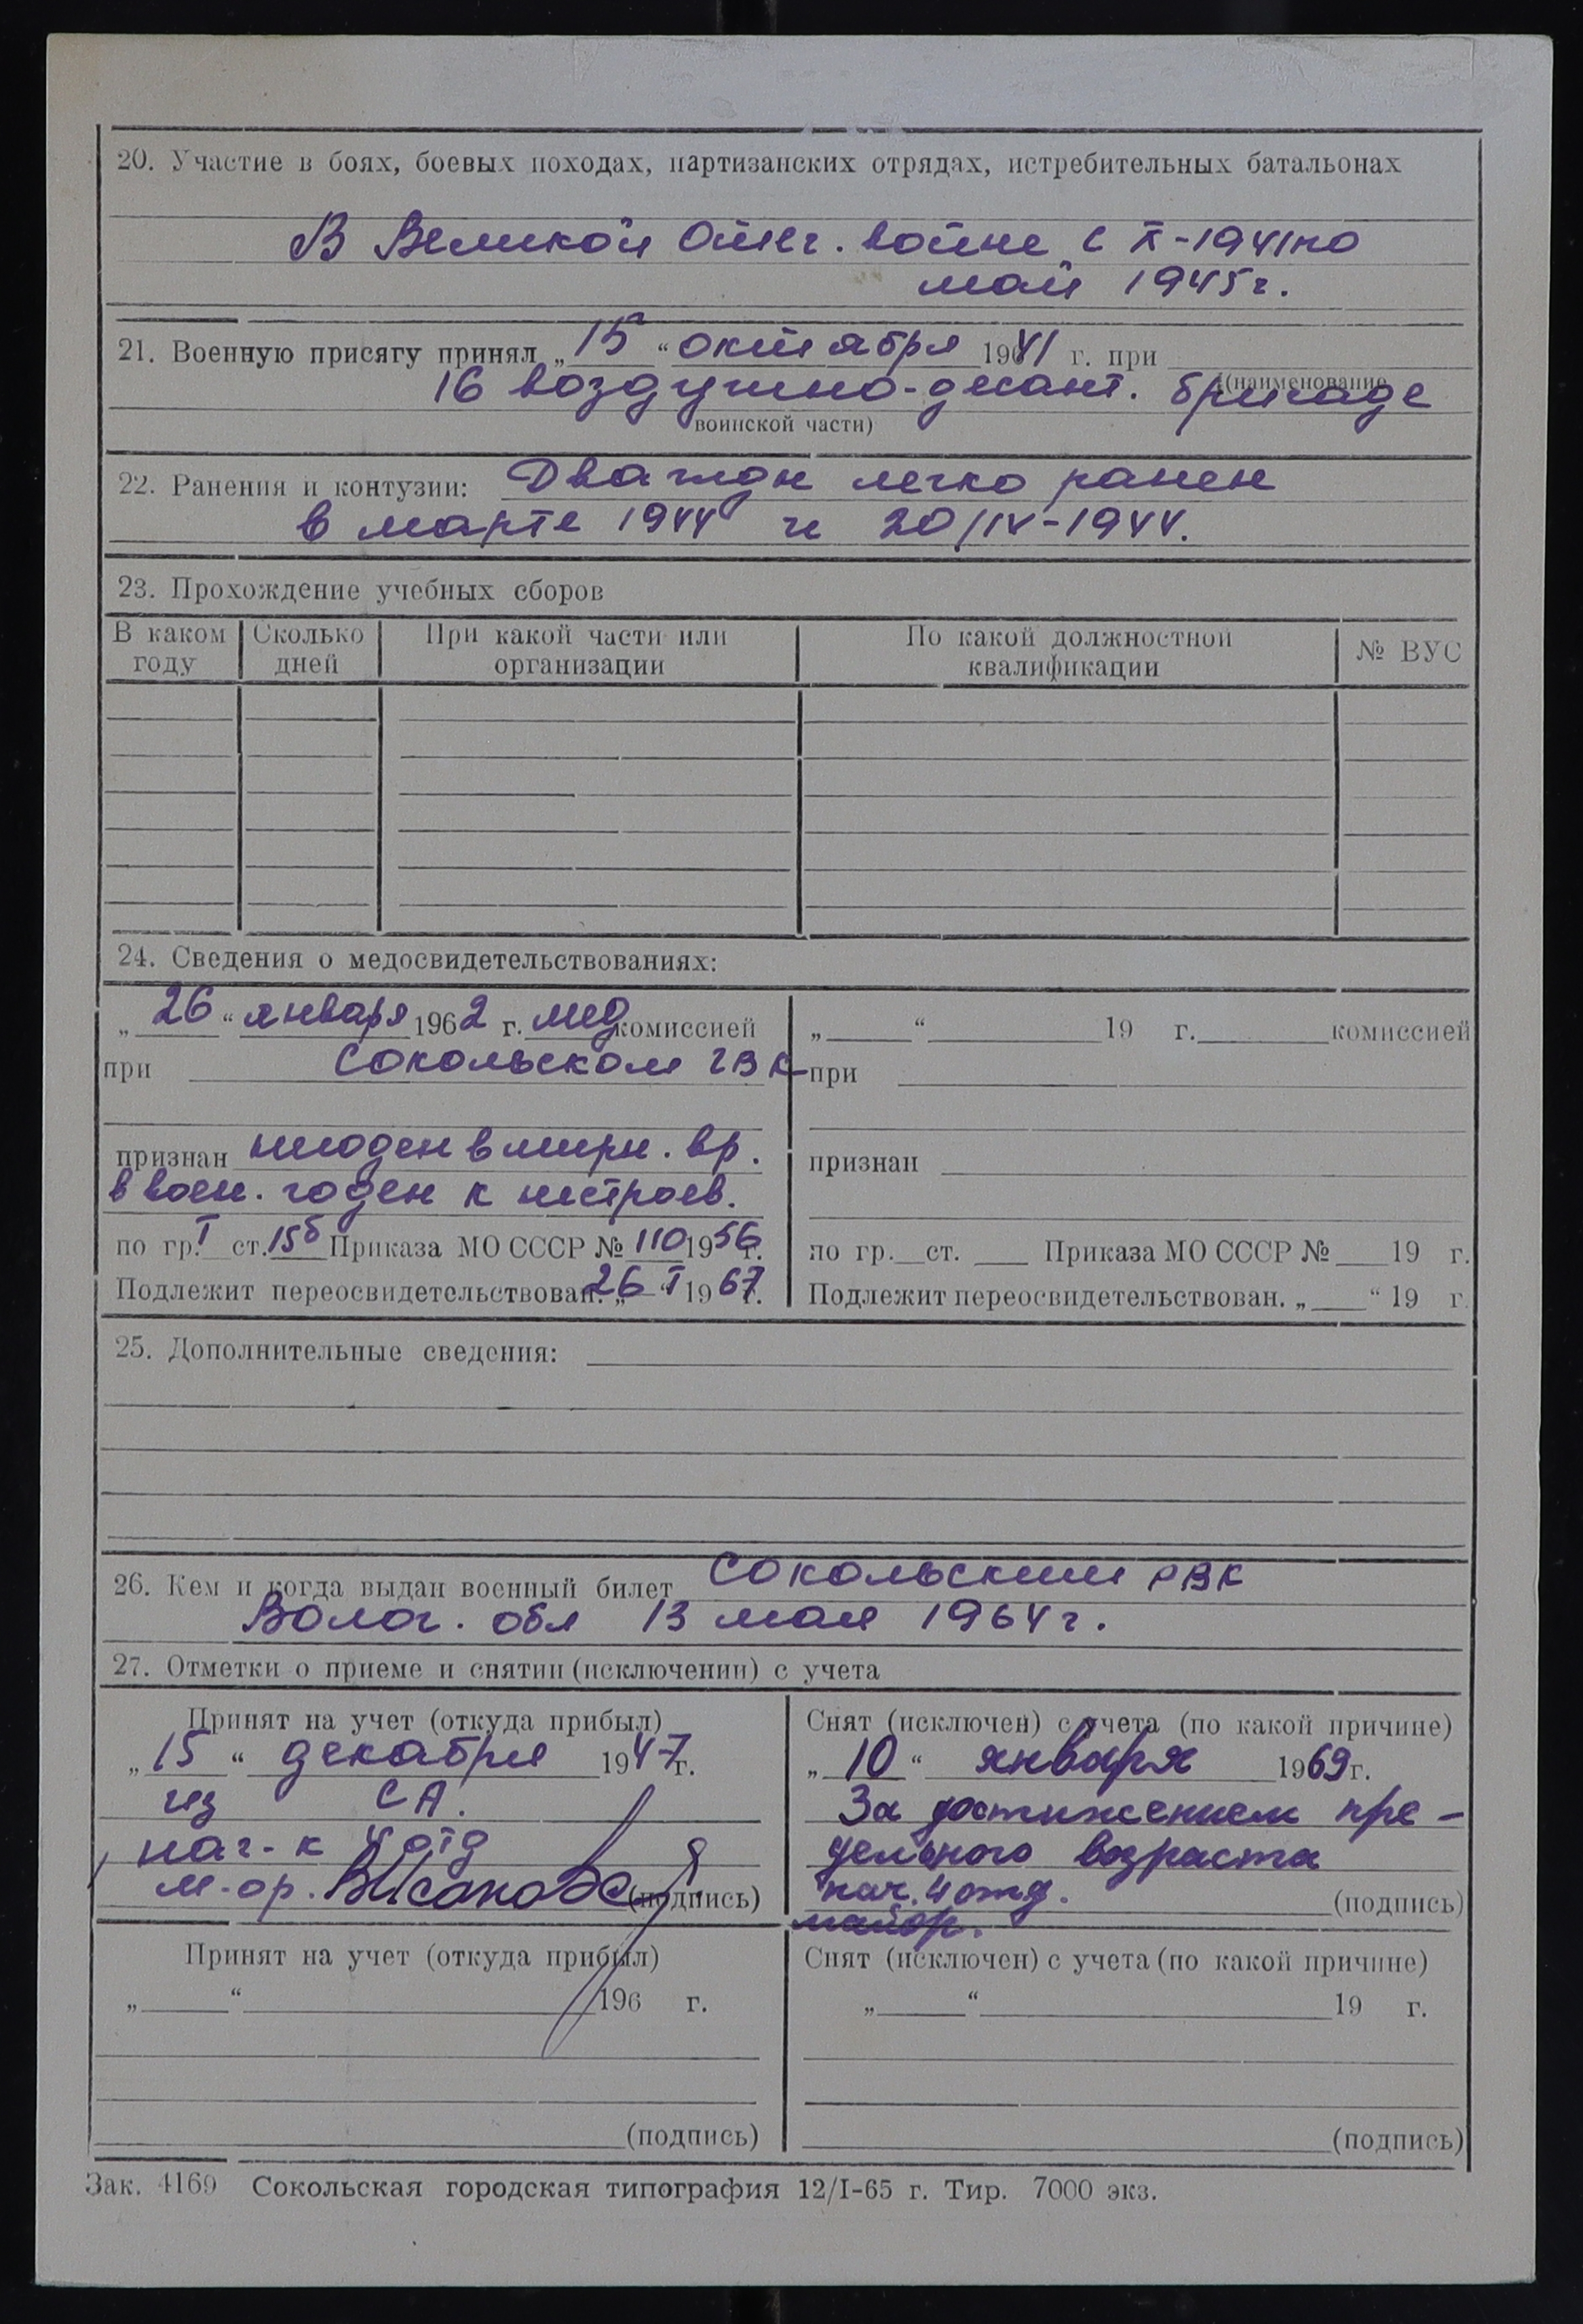 20. Участие в боях, боевых походах, партизанских отрядах, истребительных батальонах
В Великой Отеч. войне с X-1941 по
май 1945 г.
21. Военную присягу принял „15“ октября 1941 г. при
16 воздушно-десант. бригаде
(наименование
воинской части)
22. Ранения и контузии: Дважды легко ранен
в марте 1944 и 20/IV-1944.
23. Прохождение учебных сборов
В каком году
Сколько дней
При какой части или организации
По какой должностной квалификации
№ ВУС
24. Сведения о медосвидетельствованиях:
„26“ января 1962 г. мед комиссией
при Сокольском ГВК
признан негоден в мирн. вр.
в воен. годен к нестроев.
по гр. I ст. 15б Приказа МО СССР № 110 1956 г.
Подлежит переосвидетельствован. „26“ I 1967 г.
„ “ 19 г. комиссией
при
признан
по гр. ст. Приказа МО СССР № 19 г.
Подлежит переосвидетельствован. „ “ 19 г.
25. Дополнительные сведения:
26. Кем и когда выдан военный билет Сокольским РВК
Волог. обл 13 мая 1964 г.
27. Отметки о приеме и снятии (исключении) с учета
Принят на учет (откуда прибыл)
„15“ декабря 1947 г.
из СА.
нач-к 4 отд
м-ор. (подпись)
Снят (исключен) с учета (по какой причине)
„10“ января 1969 г.
За достижением пре-
дельного возраста
нач. 4 отд. (подпись)
майор.
Принят на учет (откуда прибыл)
„ “ 196 г.
(подпись)
Снят (исключен) с учета (по какой причине)
„ “ 19 г.
(подпись)
Зак. 4169 Сокольская городская типография 12/I-65 г. Тир. 7000 экз.